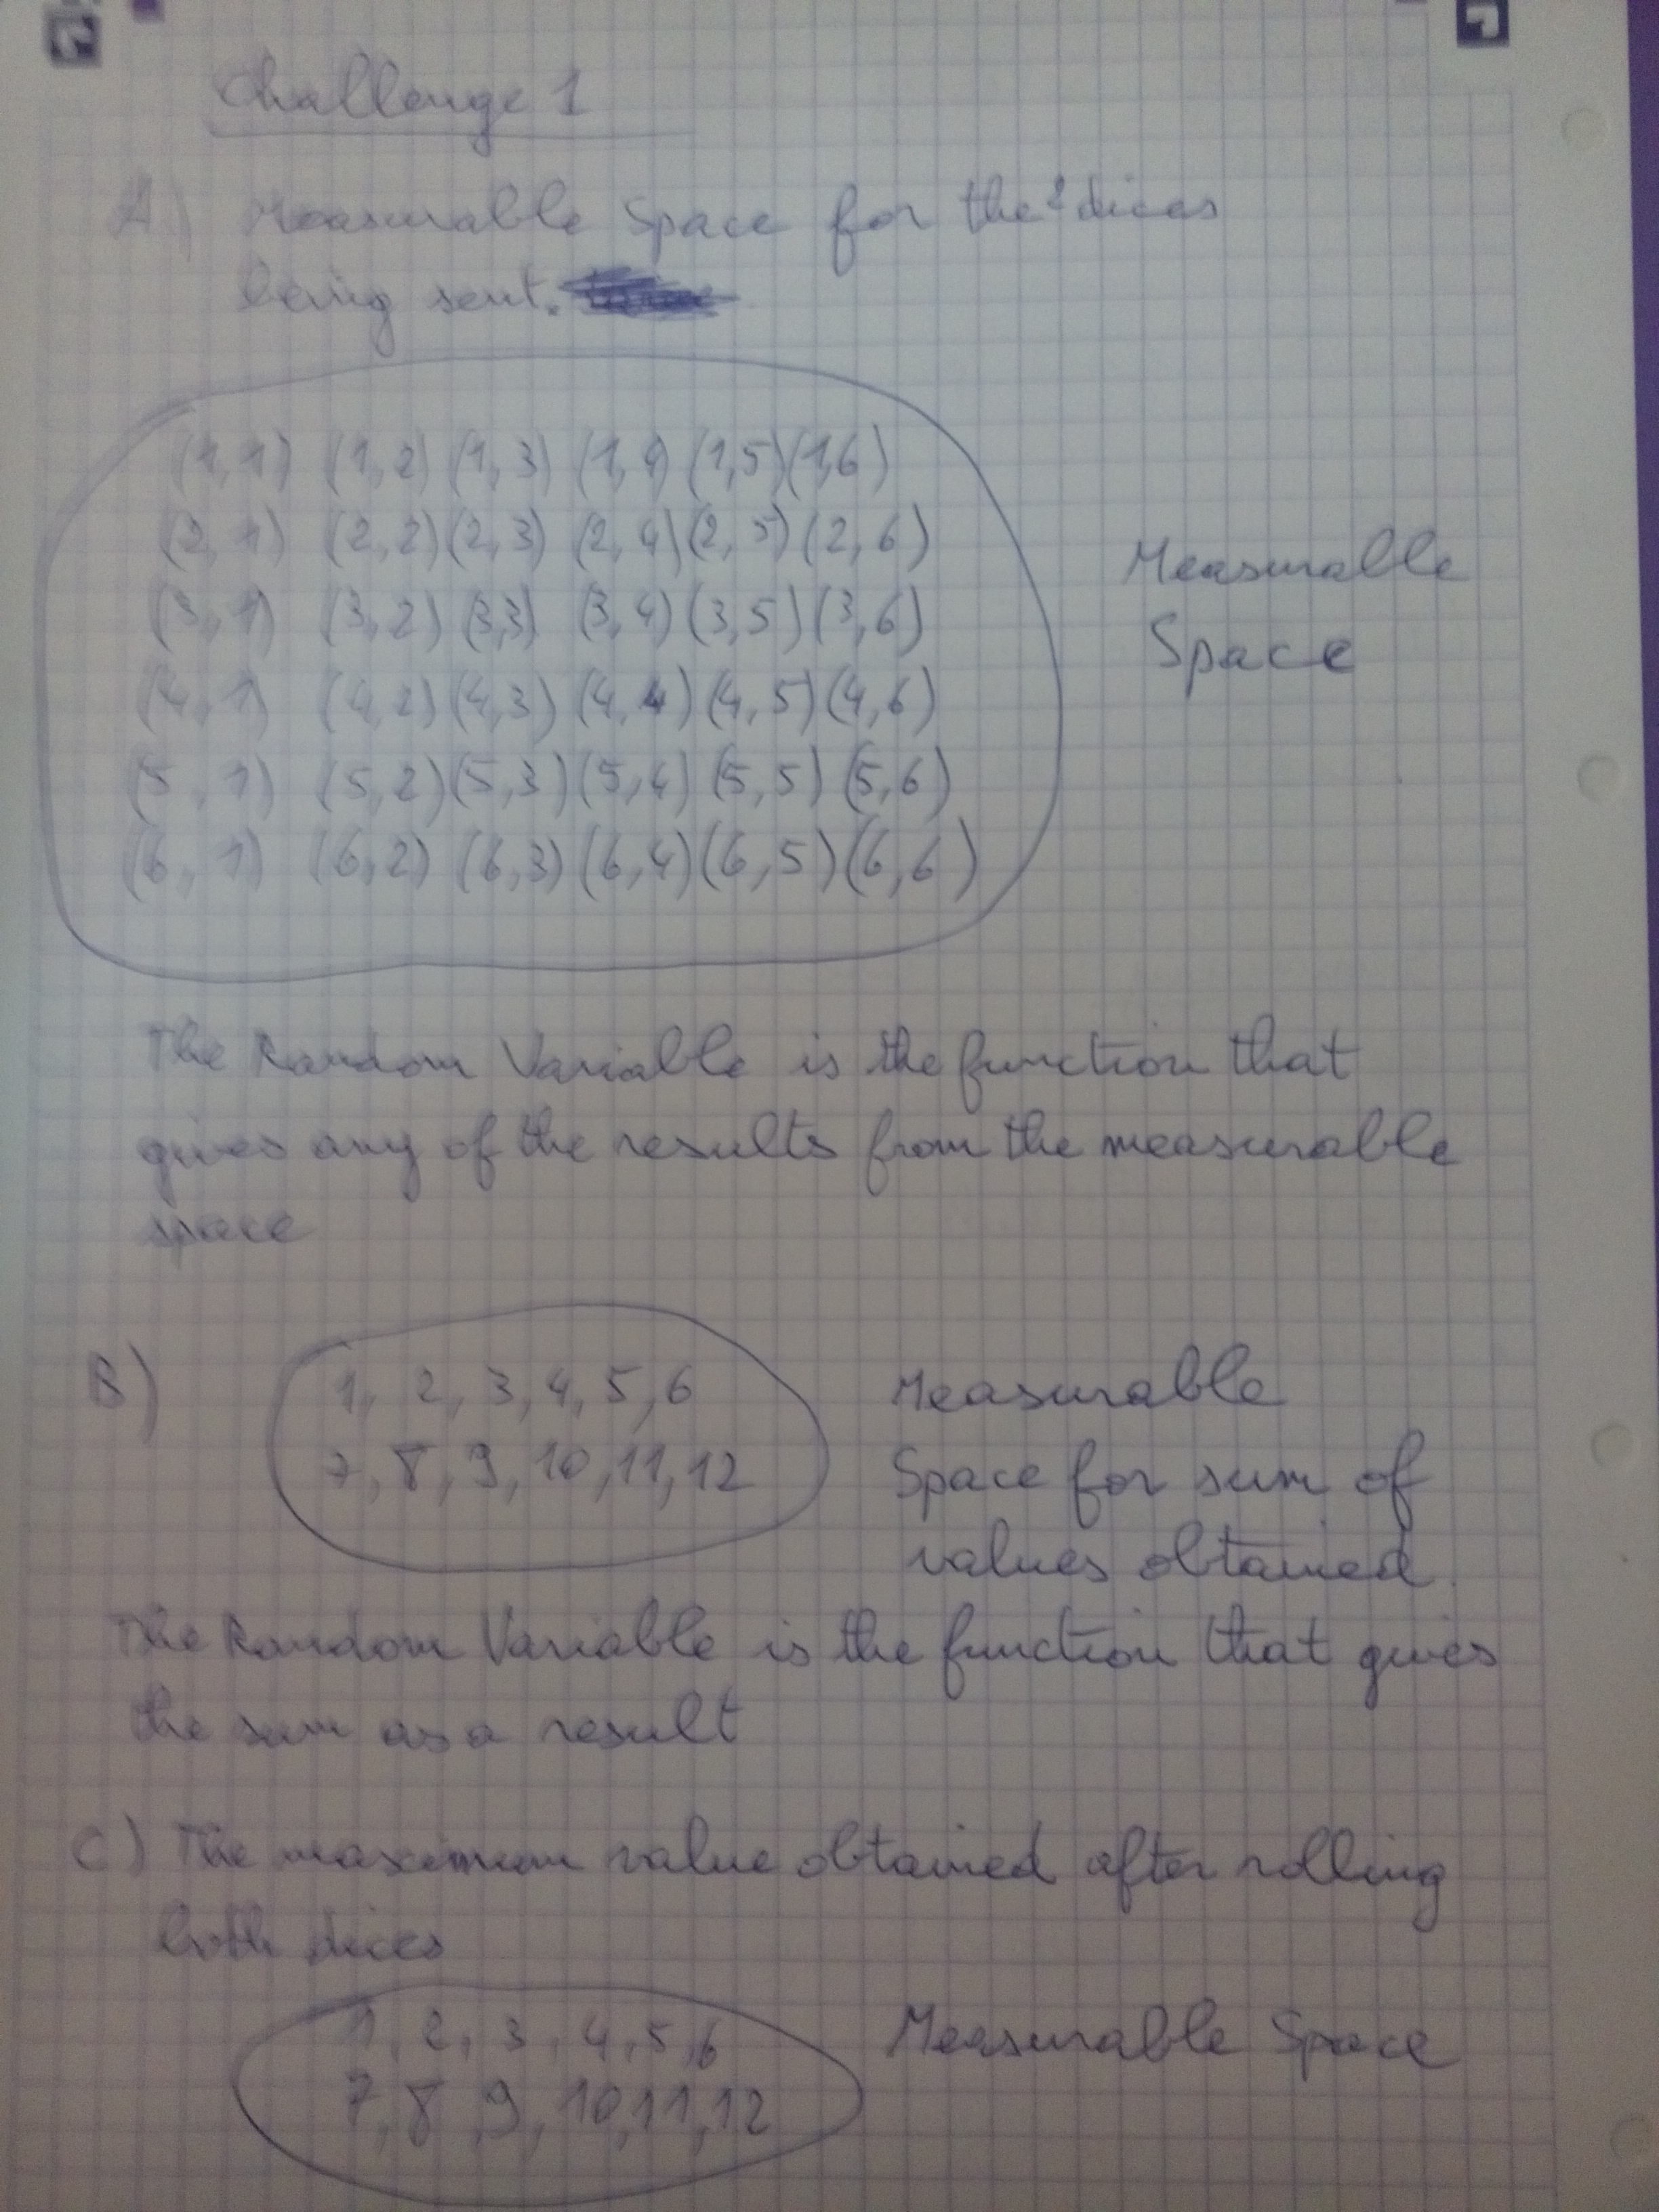 Challenge 1
A) Measurable Space for the 2 dices
being sent.
(1,1) (1,2) (1,3) (1,4) (1,5) (1,6)
(2,1) (2,2) (2,3) (2,4) (2,5) (2,6)
(3,1) (3,2) (3,3) (3,4) (3,5) (3,6)
(4,1) (4,2) (4,3) (4,4) (4,5) (4,6)
(5,1) (5,2) (5,3) (5,4) (5,5) (5,6)
(6,1) (6,2) (6,3) (6,4) (6,5) (6,6)
Measurable
Space
The Random Variable is the function that
gives any of the results from the measurable
space
B)
1, 2, 3, 4, 5, 6
7, 8, 9, 10, 11, 12
Measurable
Space for sum of
values obtained.
The Random Variable is the function that gives
the sum as a result
C) The maximum value obtained after rolling
both dices
1, 2, 3, 4, 5, 6
7, 8, 9, 10, 11, 12
Measurable Space